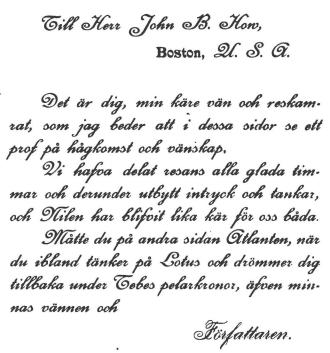 Till Herr John B. How,
Boston, U. S. A.
Det är dig, min käre vän och reskam-
rat, som jag beder att i dessa sidor se ett
prof på hågkomst och vänskap.
Vi hafva delat resans alla glada tim-
mar och derunder utbytt intryck och tankar,
och Nilen har blifvit lika kär för oss båda.
Måtte du på andra sidan Atlanten, när
du ibland tänker på Lotus och drömmer dig
tillbaka under Tebes pelarkronor, äfven min-
nas vännen och
Författaren.